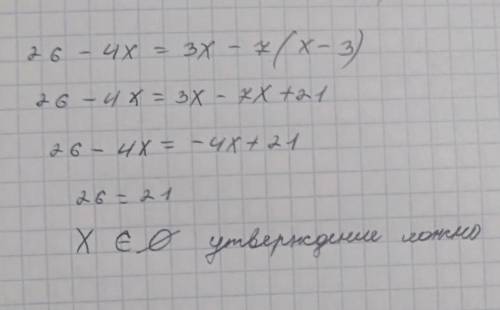 26 - 4x = 3x - 7(x - 3)
26 - 4x = 3x - 7x + 21
26 - 4x = -4x + 21
26 = 21
X ∈ ∅ утверждение ложно